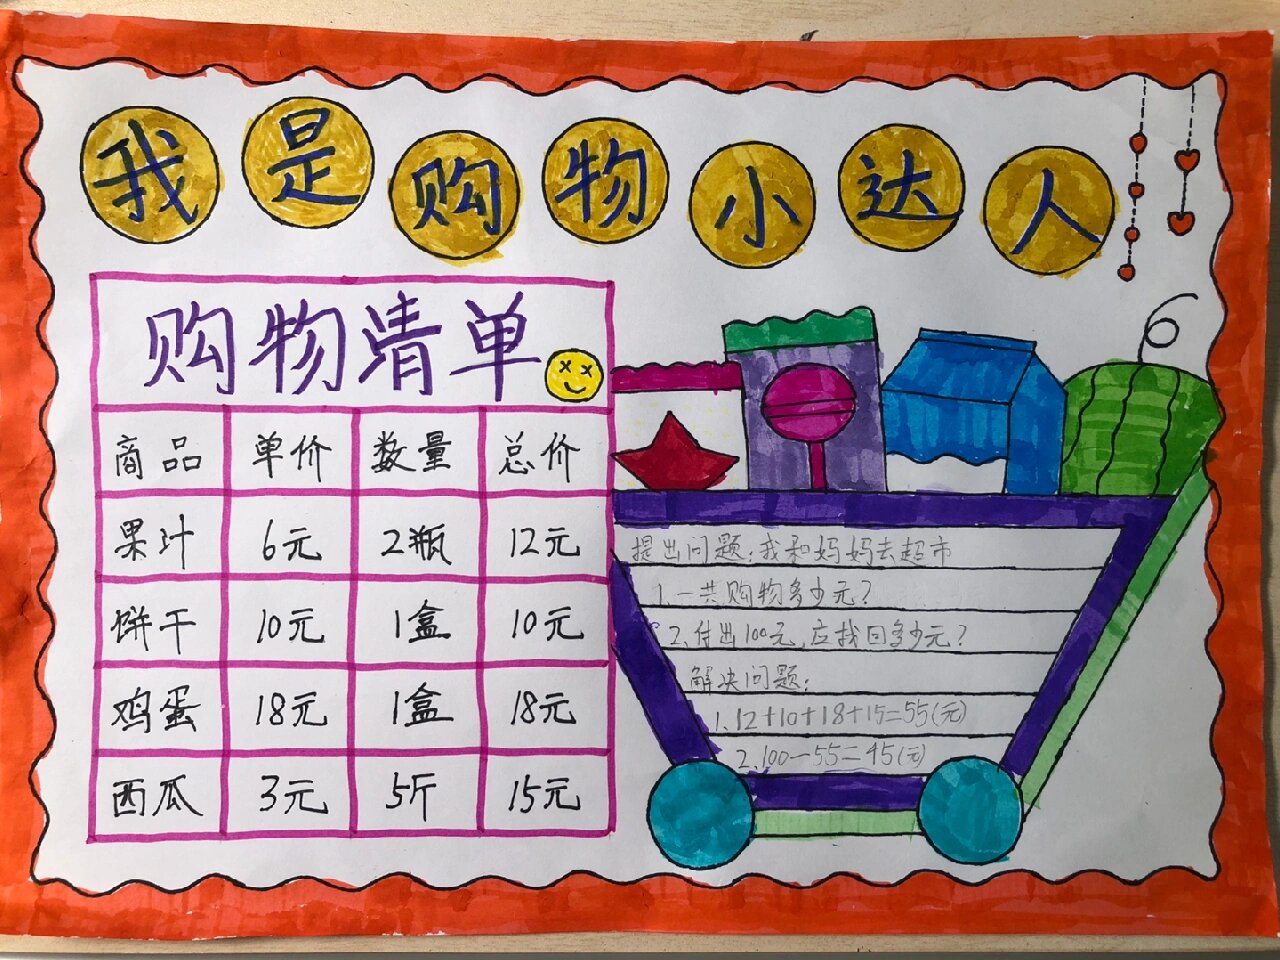 我是购物小达人
购物清单
商品 单价 数量 总价
果汁 6元 2瓶 12元
饼干 10元 1盒 10元
鸡蛋 18元 1盒 18元
西瓜 3元 5斤 15元
提出问题:我和妈妈去超市
1.一共购物多少元?
2.付出100元,应找回多少元?
解决问题:
1.12+10+18+15=55(元)
2.100-55=45(元)